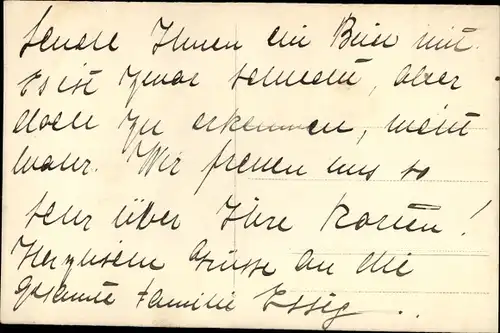 sende Ihnen ein Bild mit.
Es ist zwar schlecht, aber
doch zu erkennen, nicht
wahr. Wir freuen uns so
sehr über Ihre Karten!
Herzlichen Grüsse an die
gesamte Familie Essig ..